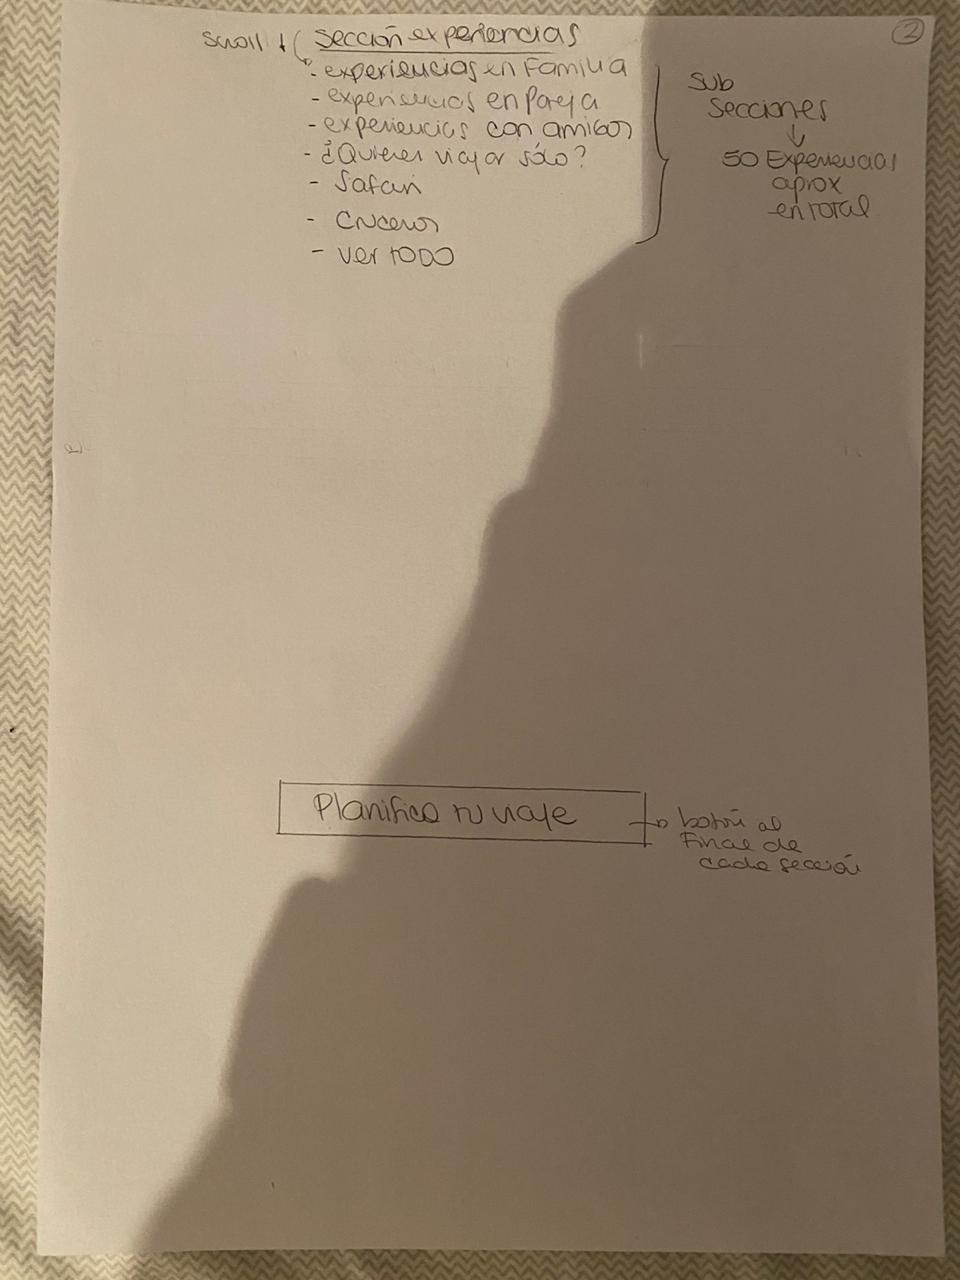 2
Scroll ↓ Sección experiencias
- experiencias en Familia
- experiencias en Pareja
- experiencias con amigos
- ¿Quieres viajar sólo?
- Safari
- Cruceros
- ver TODO
Sub
Secciones
↓
50 Experiencias
aprox
en total
Planifica tu viaje
→ botón al
Final de
cada sección